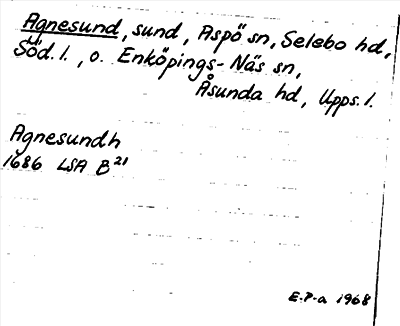 Agnesund, sund, Aspö sn, Selebo hd,
Söd. l., o. Enköpings-Näs sn,
Åsunda hd, Upps. l.
Agnesundh
1686 LSA B21
E.P-a 1968